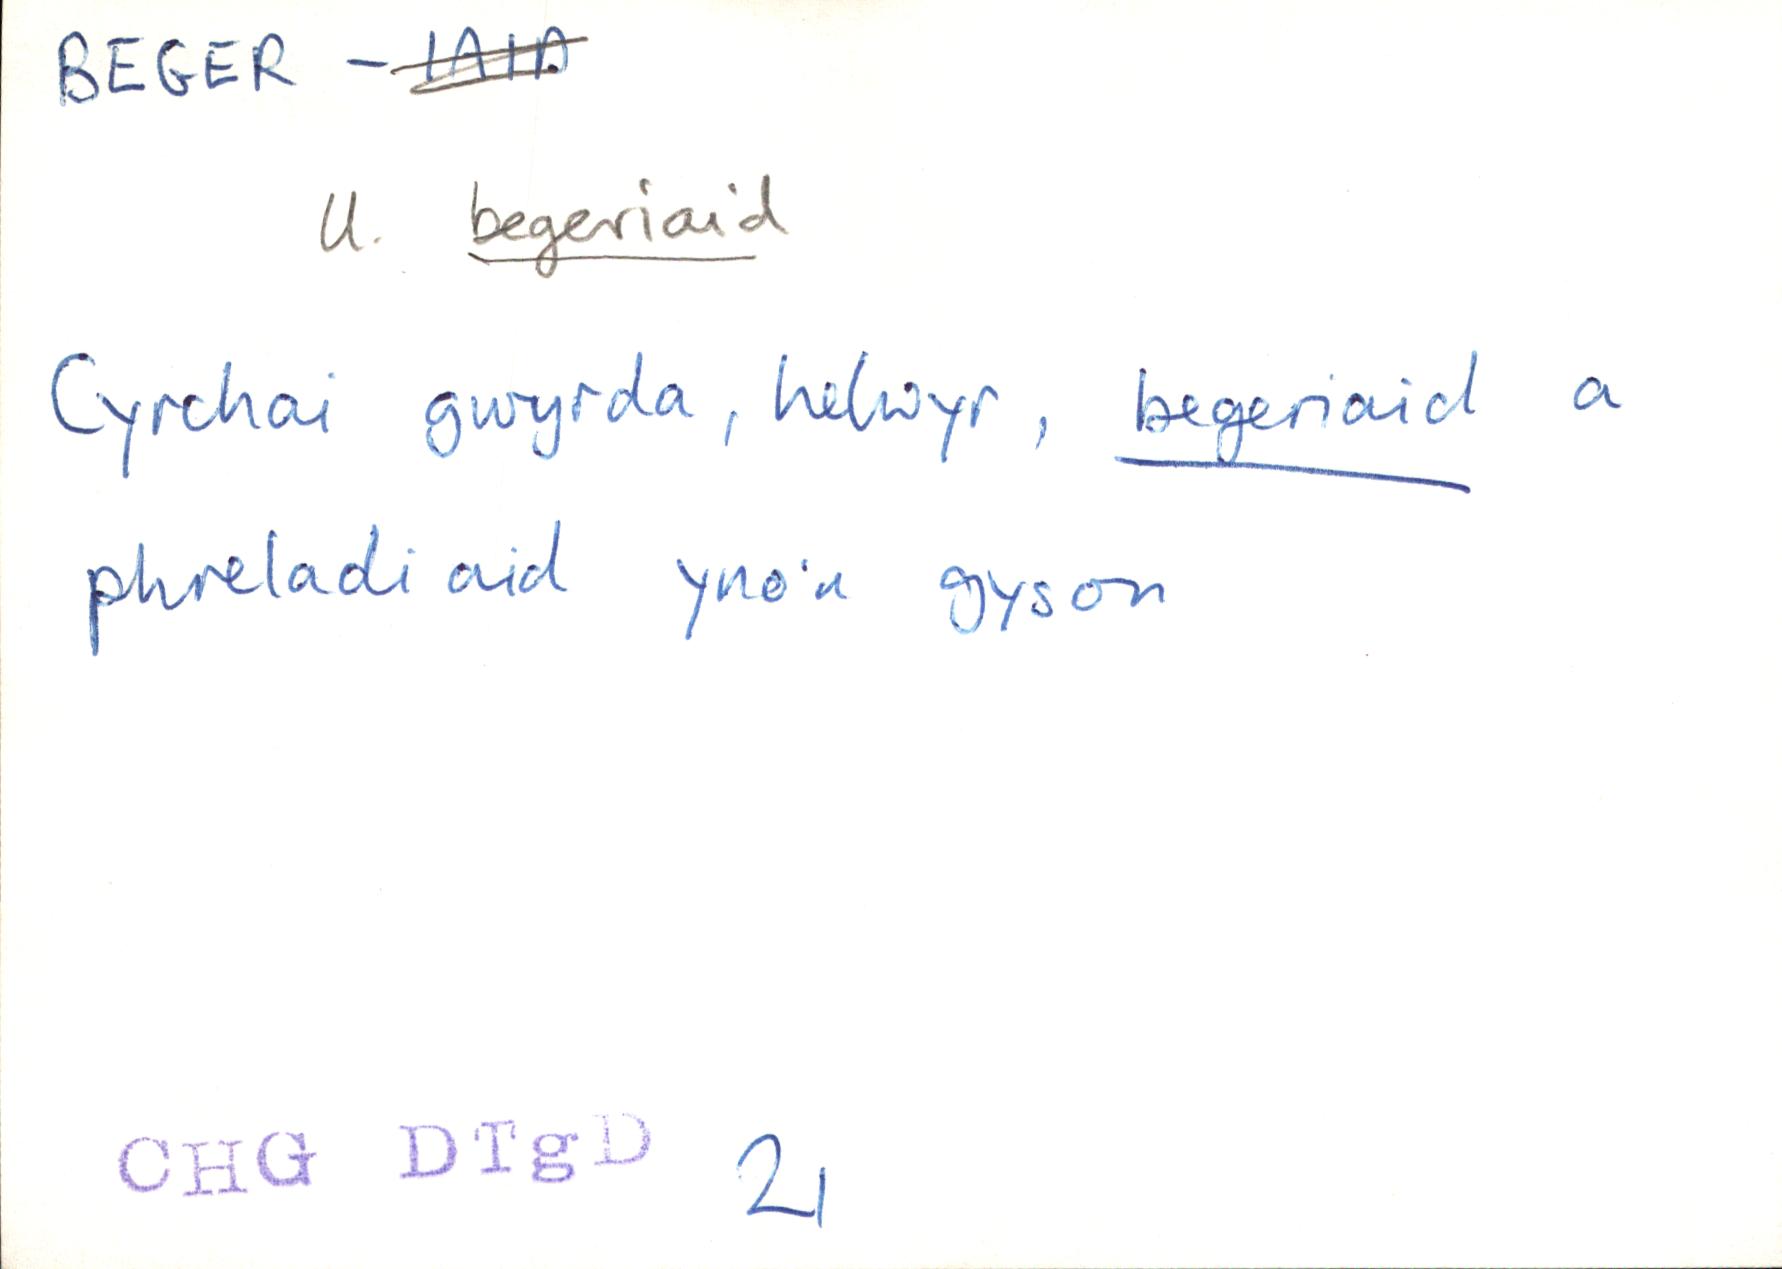 BEGER - IAID
ll. begeriaid
Cyrchai gwyrda, helwyr, begeriaid a
phreladiaid yno'n gyson
CHG DTgD 21